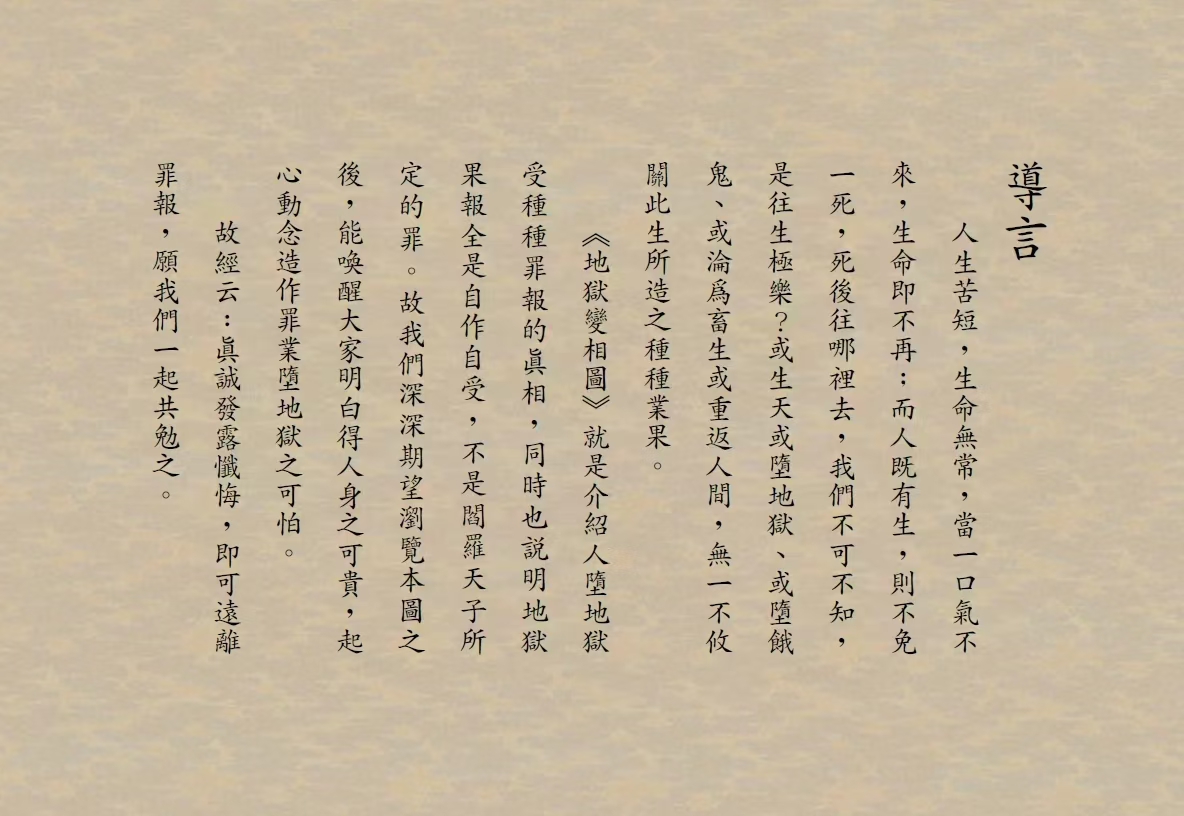 導言
人生苦短，生命無常，當一口氣不
來，生命即不再：而人既有生，則不免
一死，死後往哪裡去，我們不可不知，
是往生極樂？或生天或墮地獄、或墮餓
鬼、或淪爲畜生或重返人間，無一不攸
關此生所造之種種業果。
《地獄變相圖》就是介紹人墮地獄
受種種罪報的眞相，同時也説明地獄
果報全是自作自受，不是閻羅天子所
定的罪。故我們深深期望瀏覽本圖之
後，能喚醒大家明白得人身之可貴，起
心動念造作罪業墮地獄之可怕。
故經云：眞誠發露懺悔，即可遠離
罪報，願我們一起共勉之。